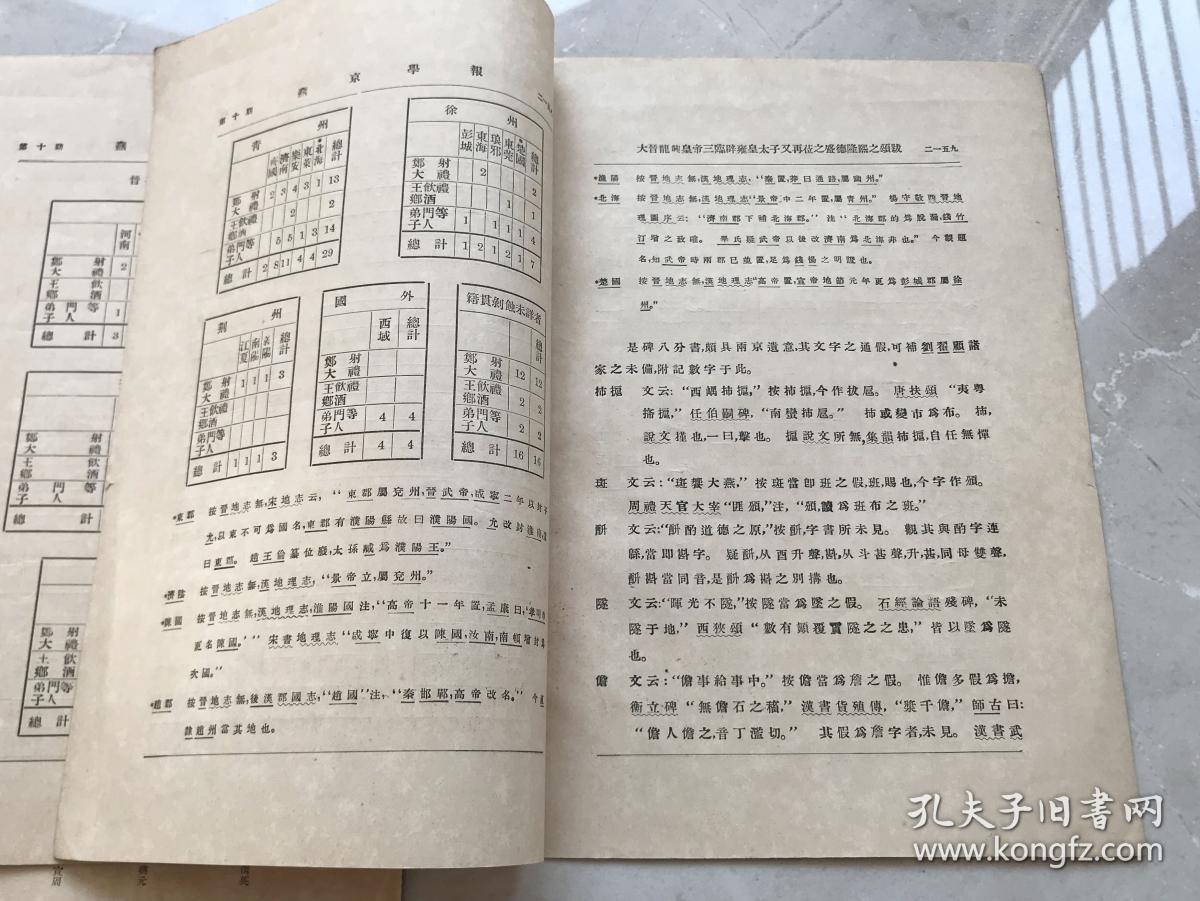 燕京學報
第十期
青州
齊國 濟南 樂安 東萊 *北海 總計
鄭大射禮 2 3 4 3 1 13
王鄉飲酒禮 2 2
弟子門人等 5 5 1 3 14
總計 2 8 11 4 4 29
徐州
彭城 東海 琅邪 東莞 *楚國 總計
鄭大射禮 2 2
王鄉飲酒禮 1 1
弟子門人等 1 1 1 1 4
總計 1 2 1 2 1 7
荆州
江夏 南陽 義陽 總計
鄭大射禮 1 1 1 3
王鄉飲酒禮
弟子門人等
總計 1 1 1 3
外國
西域 總計
鄭大射禮
王鄉飲酒禮
弟子門人等 4 4
總計 4 4
籍貫剝蝕未詳者
總計
鄭大射禮 12 12
王鄉飲酒禮 2 2
弟子門人等 2 2
總計 16 16
*東郡 按晉地志無,宋地志云,“東郡屬兗州,晉武帝,咸寧二年以封子
允,以東不可爲國名,東郡有濮陽縣故曰濮陽國。允改封淮南,還
曰東郡。趙王倫纂位廢,太孫臧爲濮陽王。”
*濟陰 按晉地志無,漢地理志,“景帝立,屬兗州。”
*陳國 按晉地志無,漢地理志,淮陽國注,“高帝十一年置,孟康曰,‘孝明帝
更名陳國。’”宋書地理志“咸寧中復以陳國,汝南,南頓增封爲
次國。”
*趙郡 按晉地志無,後漢郡國志,“趙國”注,“秦邯鄲,高帝改名。”今直
隸趙州當其地也。
大晉龍興皇帝三臨辟雍皇太子又再莅之盛德隆熙之頌跋
二一五九
*漁陽 按晉地志無,漢地理志,“秦置,莽曰通路,屬幽州。”
*北海 按晉地志無,漢地理志,“景帝中二年置,屬青州。”楊守敬西晉地
理圖序云:“濟南郡下補北海郡。”注“北海郡的爲脫漏,錢竹
汀增之致確。畢氏疑武帝以後改濟南爲北海非也。”今觀題
名,知武帝時兩郡已並置,足爲錢楊之明證也。
*楚國 按晉地志無,漢地理志“高帝置,宣帝地節元年更爲彭城郡屬徐
州。”
是碑八分書,頗具兩京遺意,其文字之通假,可補劉翟顧諸
家之未備,附記數字于此。
柿摡 文云:“西嵎柿摡,”按柿摡,今作拔扈。唐扶頌“夷粤
摡,”任伯嗣碑,“南蠻柿扈。”柿或變市爲布。柿,
說文撞也,一曰,擊也。摡說文所無,集韻柿摡,自任無憚
也。
斑 文云:“斑饗大燕,”按斑當卽班之假,班賜也,今字作頒。
周禮天官大宰“匪頒,”注,“頒讀爲班布之班。”
酙 文云:“酙酌道德之原,”按酙,字書所未見。觀其與酌字連
緜,當卽斟字。疑酙,从酉升聲,斟,从斗甚聲,升,甚,同母雙聲,
酙斟當同音,是酙爲斟之別搆也。
隧 文云:“暉光不隧,”按隧當爲墜之假。石經論語殘碑,“未
隧于地,”西狹頌“數有顚覆霣隧之之患,”皆以墜爲隧
也。
儋 文云:“儋事給事中。”按儋當爲詹之假。惟儋多假爲擔,
衡立碑“無儋石之稿,”漢書貨殖傳,“漿千儋,”師古曰:
“儋人儋之,音丁濫切。”其假爲詹字者,未見。漢書武
第十期
燕
晉
河南
鄭大射禮 2
王鄉飲酒
弟子門人等 1
總計 3
鄭大射禮
王鄉飲酒
弟子門人等
總計
鄭大射禮
王鄉飲酒
弟子門人等
總計
孔夫子旧书网
www.kongfz.com